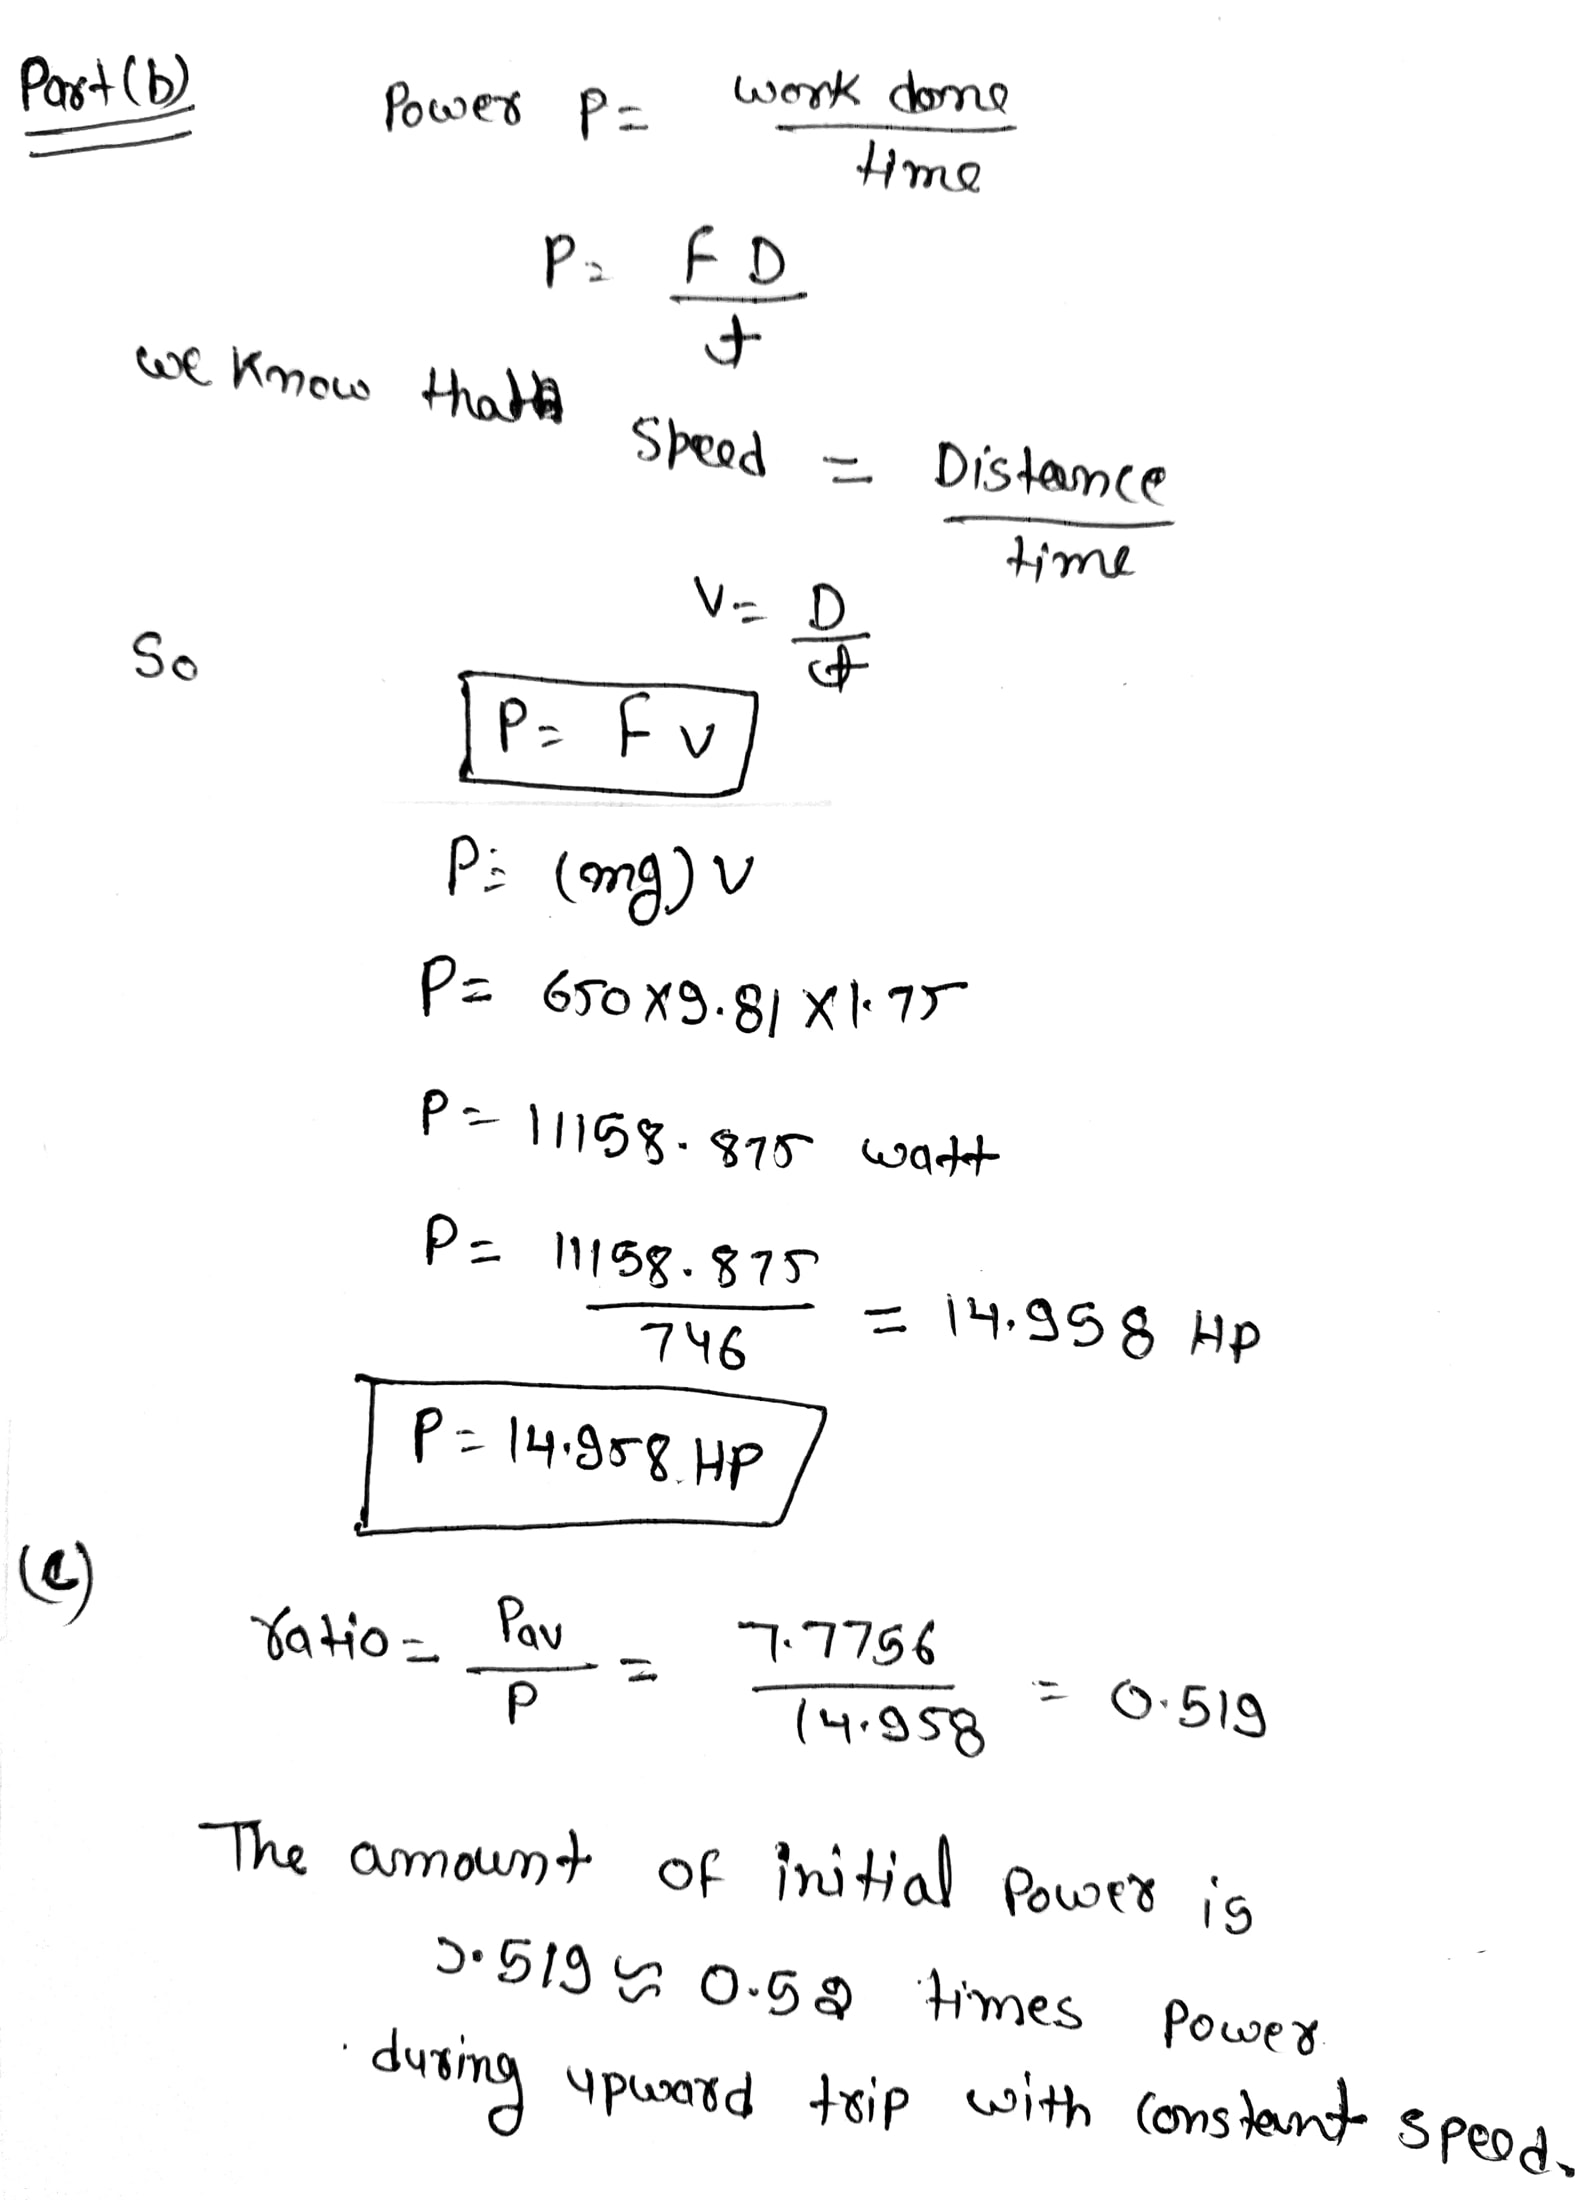 Part (b)
Power P = work done
time
P = F D
t
we know that
Speed = Distance
time
V = D
t
So
P = F V
P = (mg) V
P = 650 x 9.81 x 1.75
P = 11158.875 watt
P = 11158.875
746
= 14.958 HP
P = 14.958 HP
(c)
ratio = Pav = 7.7756 = 0.519
P 14.958
The amount of initial Power is
0.519 ≈ 0.52 times power
during upward trip with constant speed.